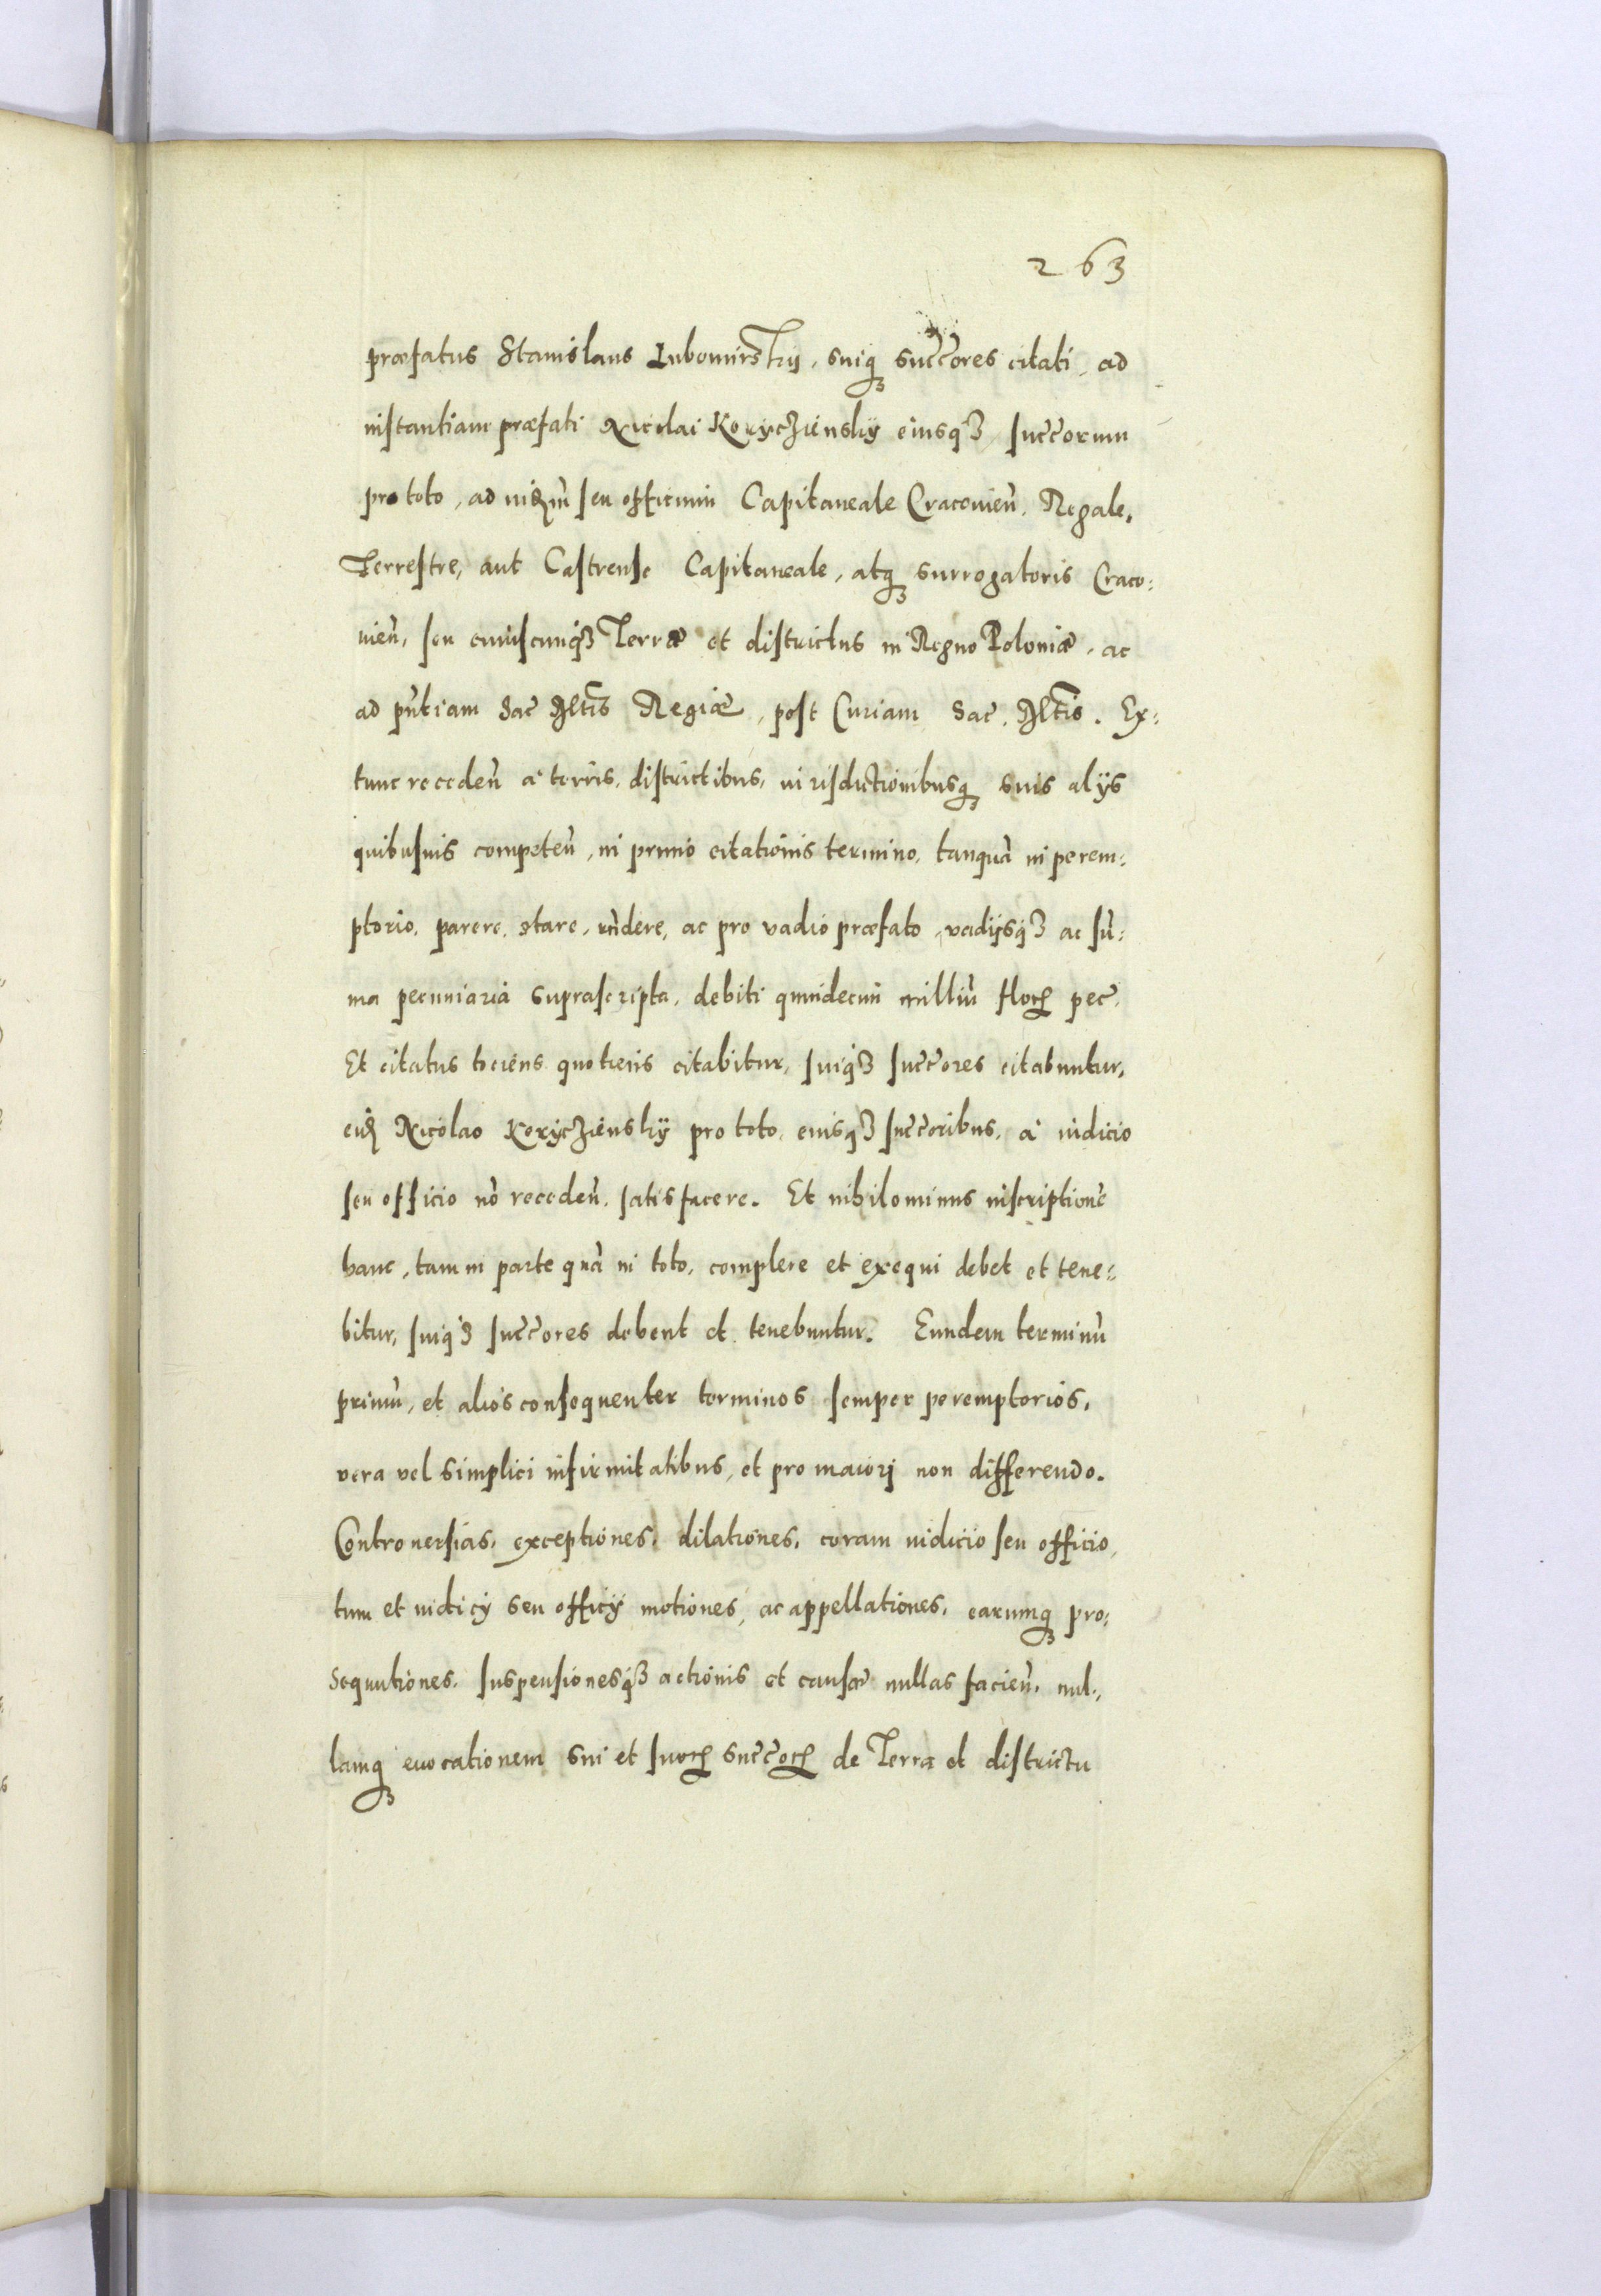 263
præfatus Stanislaus Lubomirskij, suiq3 succores citati, ad
instantiam præfati Nicolai Koryczienskÿ eiusq3 succorum
pro toto, ad iudm seu officium Capitaneale Cracovien, Regale,
Terrestre, aut Castrense Capitaneale, atq3 surrogatoris Craco:
vien, seu cuiuscunq3 Terræ et districtus in Regno Poloniæ, ac
ad pntiam Sac Mtis Regiæ, post Curiam Sac. Mtis. Ex:
tunc receden à terris, districtibus, iurisdictionibusq3 suis alijs
quibusuis competen, in primo citationis termino, tanquã in perem:
ptorio, parere, stare, rndere, ac pro vadio præfato, vadijsq3 ac sũ:
ma pecuniaria suprascripta, debiti quindecim milliũ flor pec.
Et citatus tociens quotiens citabitur, suiq3 succores citabuntur,
eid Nicolao Koryczienskÿ pro toto, eiusq3 succoribus, à iudicio
seu officio nõ receden, satisfacere. Et nihilominus inscriptionẽ
hanc, tam in parte quã in toto, complere et exequi debet et tene:
bitur, suiq3 succores debent et tenebuntur. Eundem terminũ
primũ, et alios consequenter terminos semper peremptorios,
vera vel simplici infirmitatibus, et pro maiori non differendo.
Controuersias, exceptiones, dilationes, coram iudicio seu officio,
tum et iudicij seu officij motiones, ac appellationes, earumq3 pro:
sequutiones, suspensionesq3 actionis et causæ nullas facien, nul:
lamq3 euocationem sui et suor succor de Terra et districtu